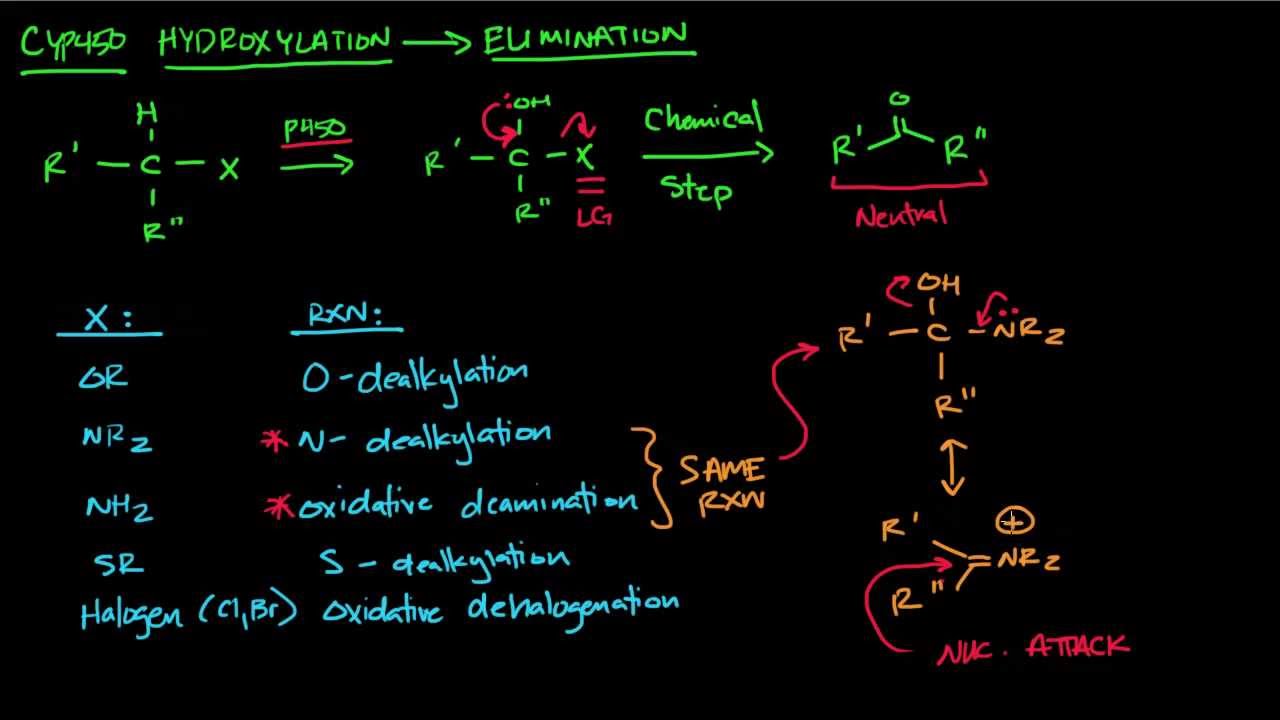 CYP450 HYDROXYLATION → ELIMINATION
H
R' — C — X
R"
P450
:OH
R' — C — X
R"
LG
Chemical
Step
O
R' R"
Neutral
X: RXN:
OR O-dealkylation
NR2 * N- dealkylation
NH2 * oxidative deamination
SR S - dealkylation
Halogen (Cl, Br) oxidative dehalogenation
} SAME
RXN
OH
R' — C — NR2
R"
R' +
= NR2
R"
NUC. ATTACK